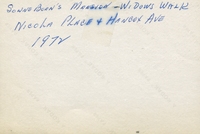 Sonneborn's Mansion - Widows Walk
Nicola Place & Hancox Ave
1972